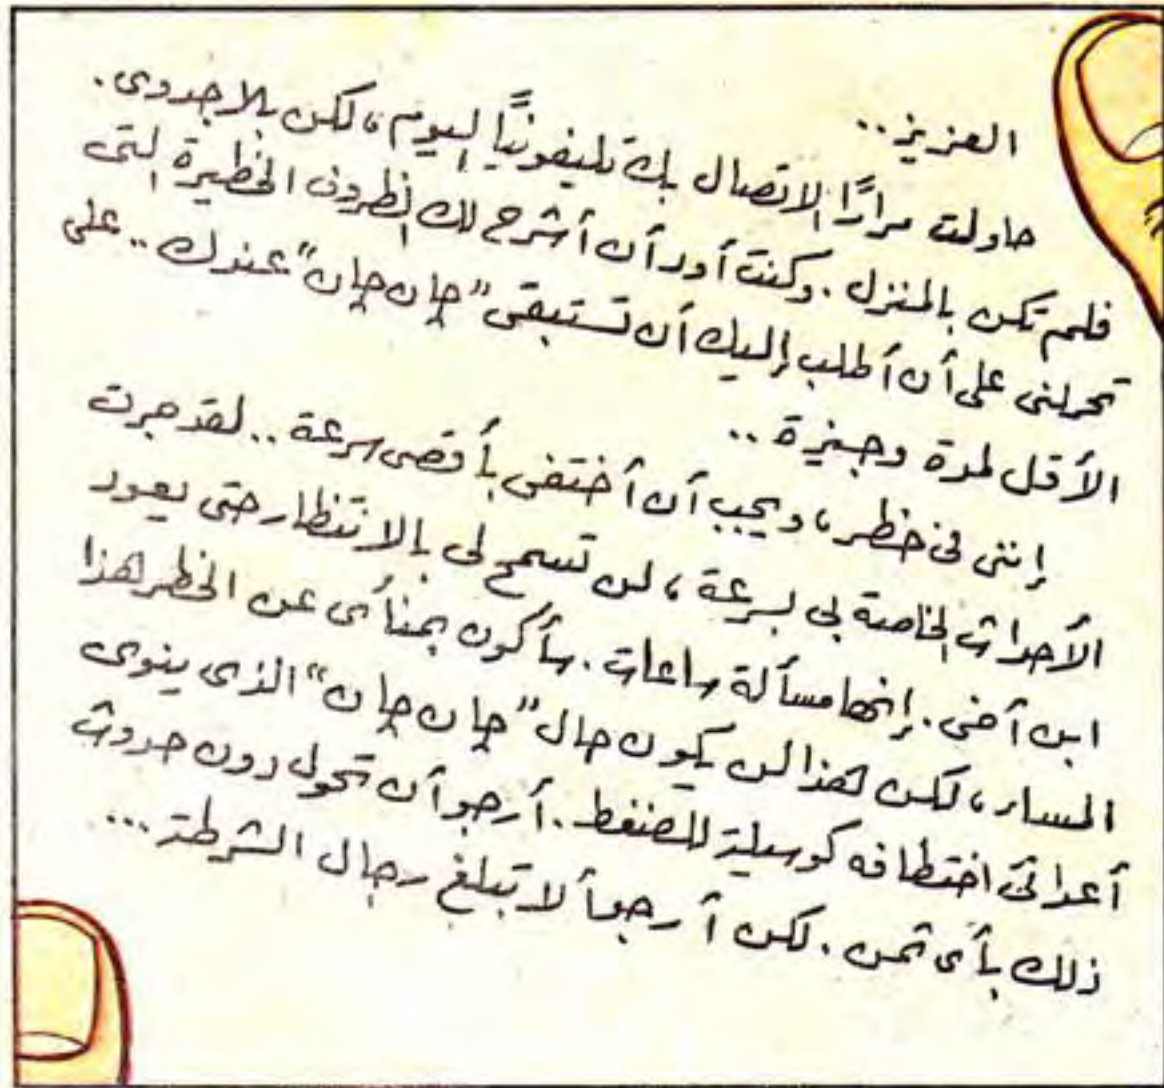 العزيز..
حاولت مرارًا الاتصال بك تليفونيًا اليوم، لكن بلا جدوى.
فلم تكن بالمنزل. وكنت أود أن أشرح لك الظروف الخطيرة التى
تحملنى على أن أطلب إليك أن تستبقى "چان چان" عندك.. على
الأقل لمدة وجيزة..
إننى فى خطر، ويجب أن أختفى بأقصى سرعة.. لقد جرت
الأحداث الخاصة بى بسرعة، لن تسمح لى بالانتظار حتى يعود
ابن أخى. إنها مسألة ساعات. سأكون بمنأى عن الخطر هذا
المساء، لكن هذا لن يكون حال "چان چان" الذى ينوى
أعدائى اختطافه كوسيلة للضغط. أرجو أن تحول دون حدوث
ذلك بأى ثمن. لكن أرجو ألا تبلغ رجال الشرطة...